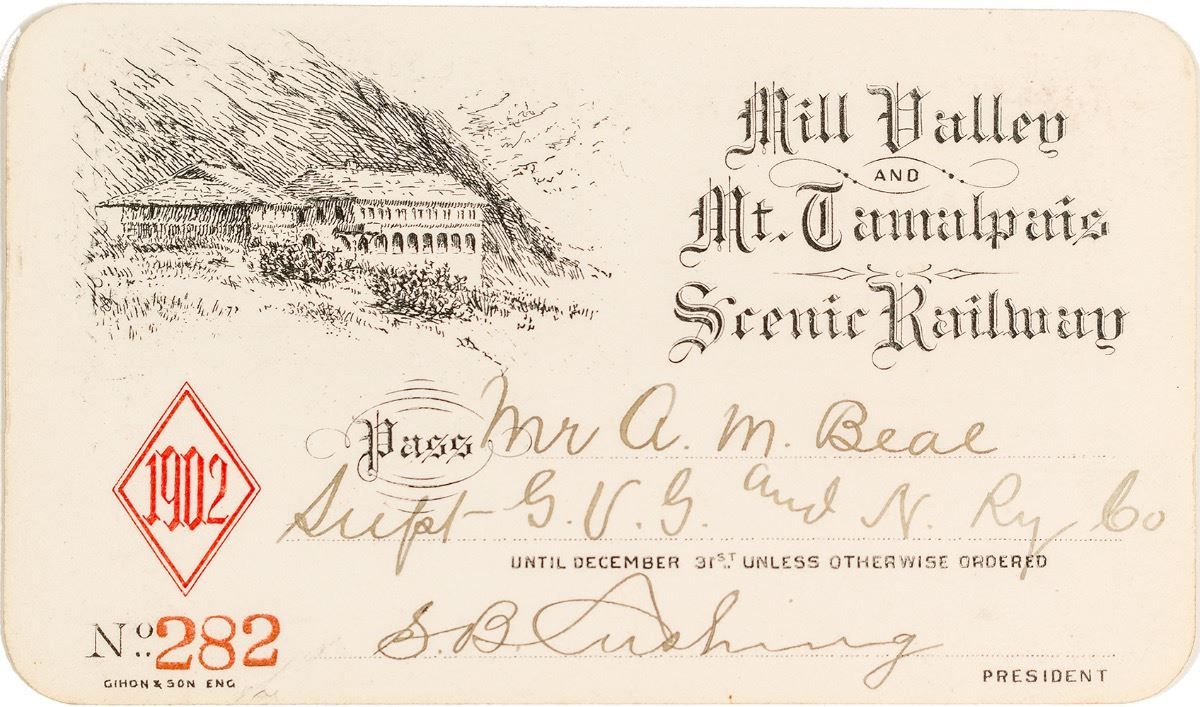 Mill Valley
AND
Mt. Tamalpais
Scenic Railway
1902
Pass Mr A. M. Beal
Supt- G. V. G. and N. Ry Co
UNTIL DECEMBER 31ST UNLESS OTHERWISE ORDERED
No. 282
S. B. Cushing
GIHON & SON ENG
PRESIDENT